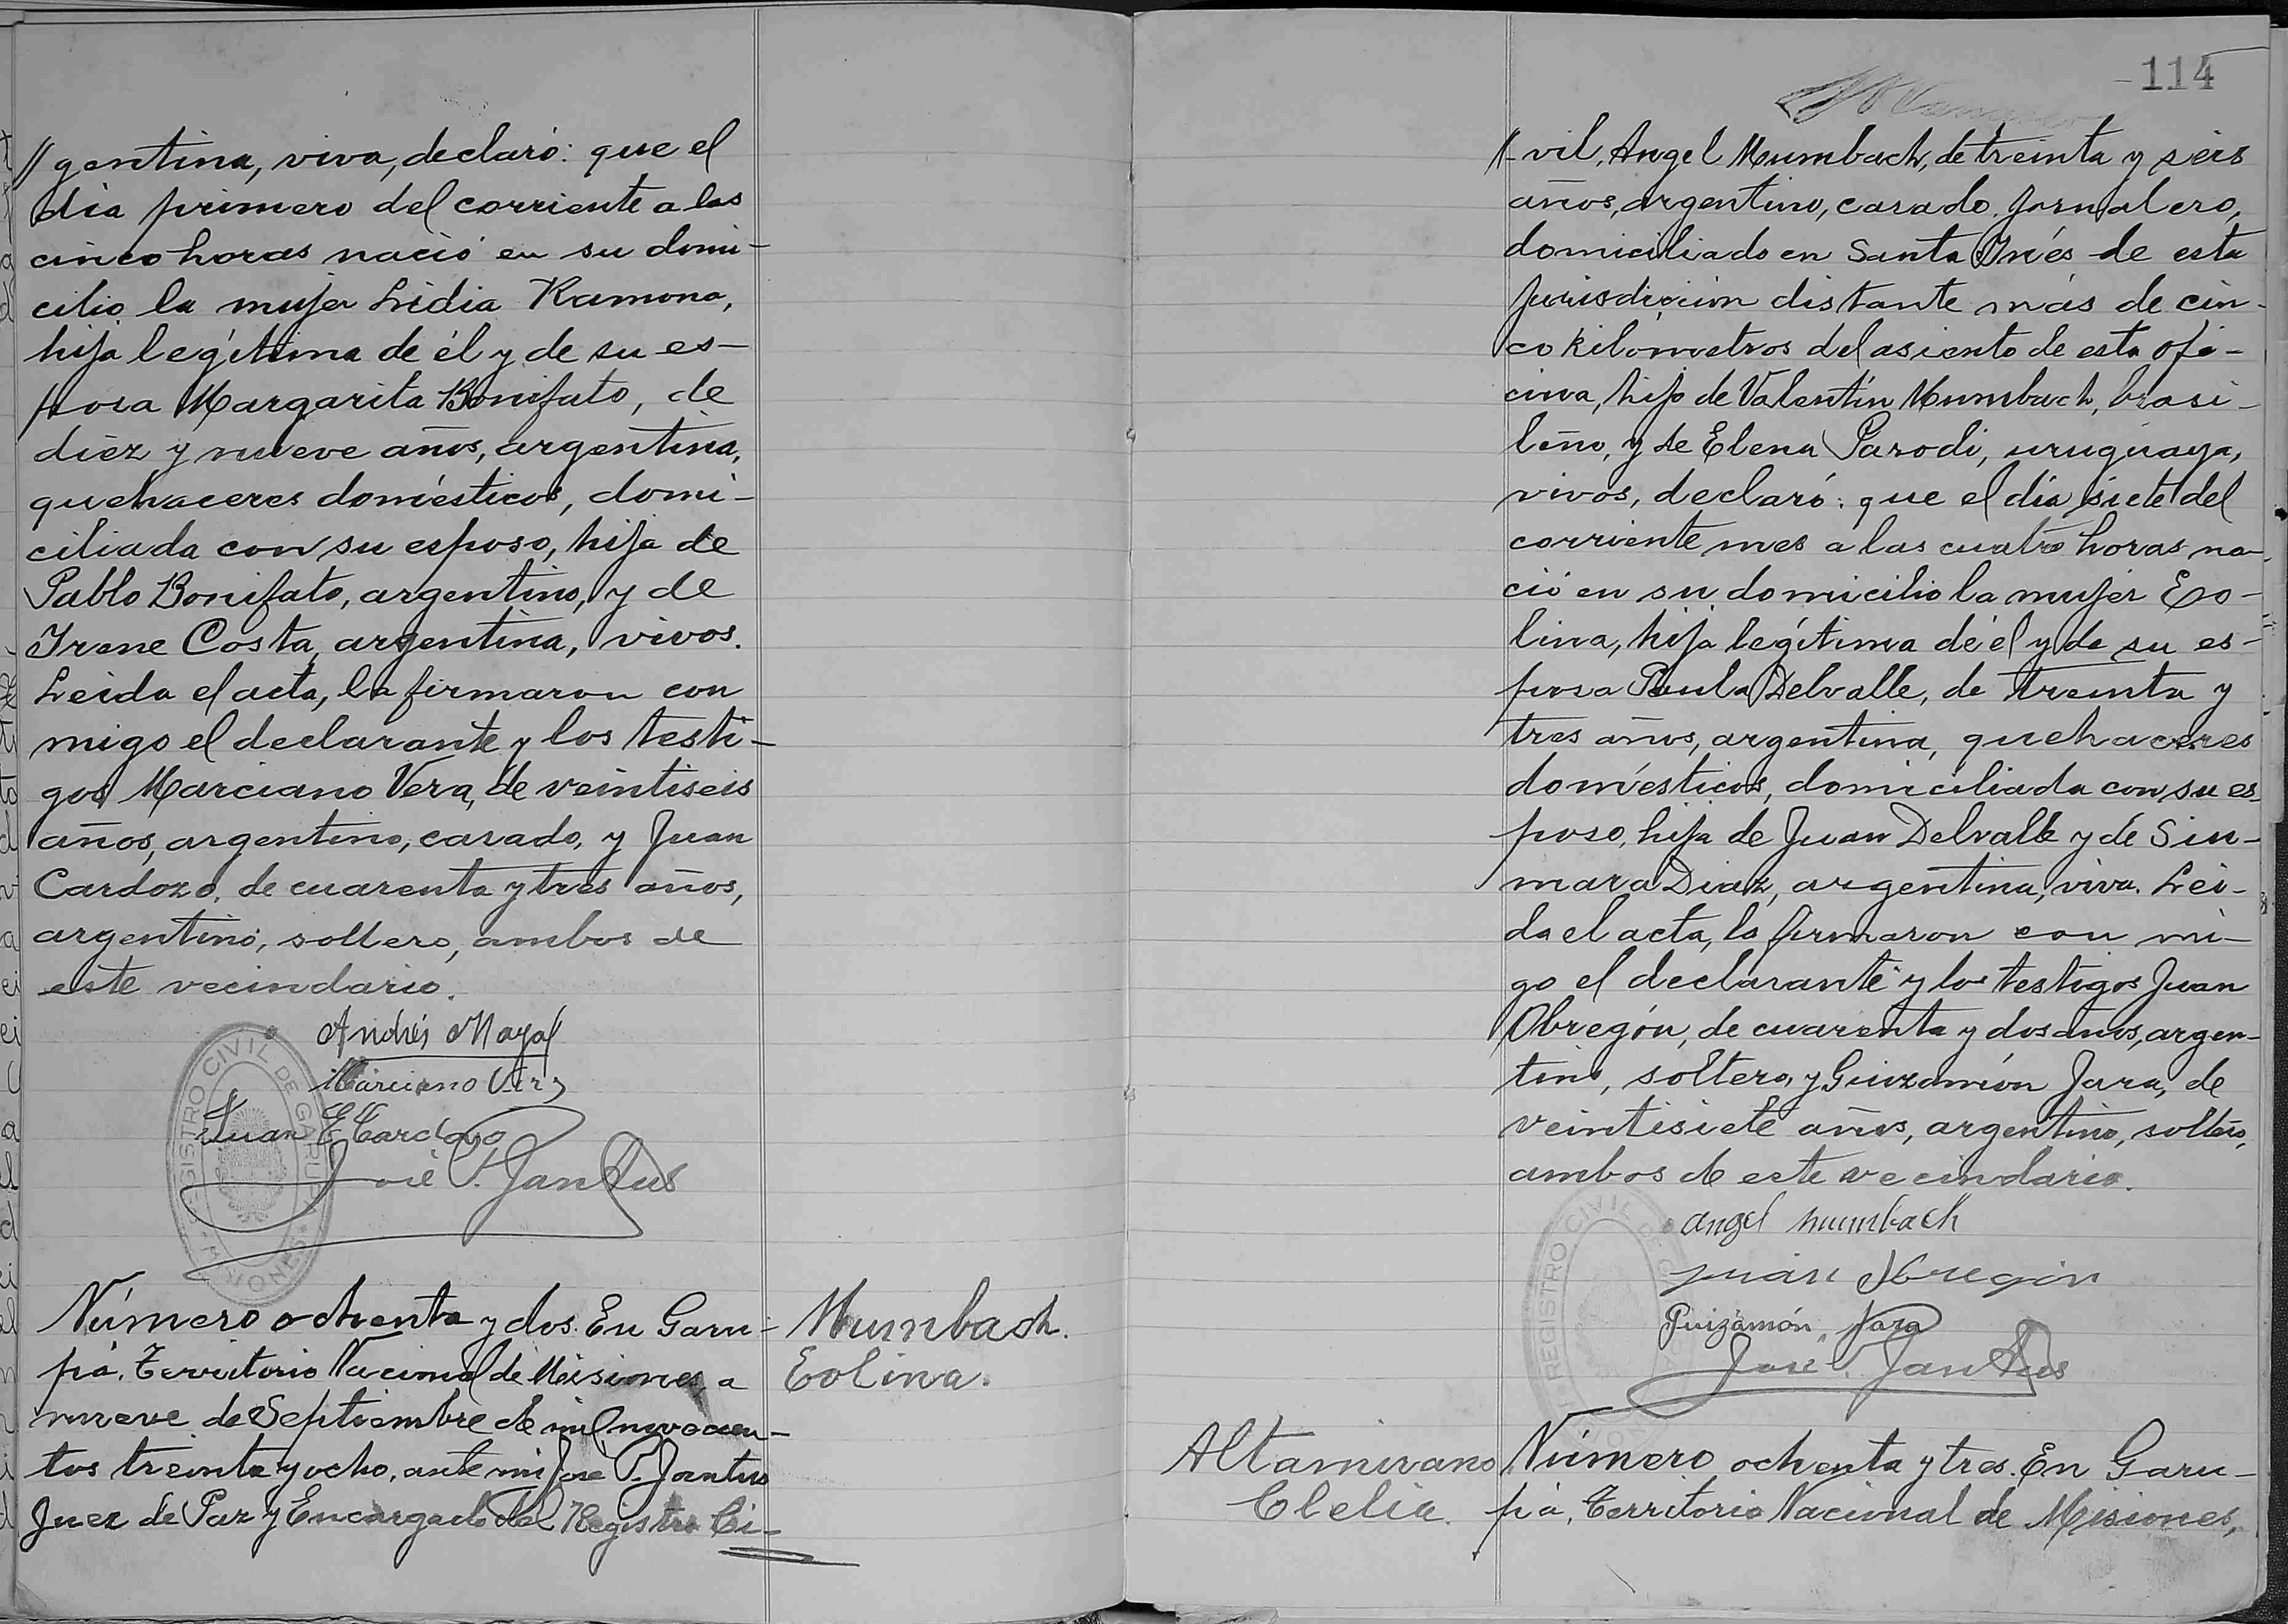 // gentina, viva, declaró: que el
día primero del corriente a las
cinco horas nació en su domi-
cilio la mujer Lidia Ramona,
hija legítima de él y de su es-
posa Margarita Bonifato, de
diez y nueve años, argentina,
quehaceres domésticos, domi-
ciliada con su esposo, hija de
Pablo Bonifato, argentino, y de
Irene Costa, argentina, vivos.
Leida el acta, la firmaron con
migo el declarante y los testi-
gos Marciano Vera, de veintiseis
años, argentino, casado, y Juan
Cardozo, de cuarenta y tres años,
argentino, soltero, ambos de
este vecindario.
Andrés Mayol
Marciano Vera
Juan E Cardozo
José P. Jantus
REGISTRO CIVIL DE GARUPA
MISIONES
Número ochenta y dos. En Garu-
pá, Territorio Nacional de Misiones, a
nueve de Septiembre de mil novecien-
tos treinta y ocho, ante mi José P. Jantus
Juez de Paz y Encargado del Registro Ci-
Mumbach.
Eolina.
114
//-vil, Angel Mumbach, de treinta y seis
años, argentino, casado, jornalero,
domiciliado en Santa Inés de esta
jurisdicción distante más de cin-
co kilómetros del asiento de esta ofi-
cina, hijo de Valentín Mumbach, brasi-
leño, y de Elena Parodi, uruguaya,
vivos, declaró: que el día siete del
corriente mes a las cuatro horas na-
ció en su domicilio la mujer Eo-
lina, hija legítima de él y de su es-
posa Paula Delvalle, de treinta y
tres años, argentina, quehaceres
domésticos, domiciliada con su es-
poso, hija de Juan Delvalle y de Sin-
mara Diaz, argentina, viva. Lei-
da el acta, la firmaron con mi-
go el declarante y los testigos Juan
Obregón, de cuarenta y dos años, argen-
tino, soltero, y Guizamón Jara, de
veintisiete años, argentino, soltero,
ambos de este vecindario.
angel mumbach
juan Obregón
Guizamón Jara
José P. Jantus
REGISTRO CIVIL
Altamirano
Clelia.
Número ochenta y tres. En Garu-
pá, Territorio Nacional de Misiones,